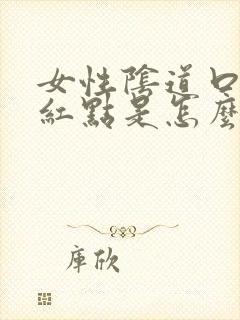 女性陰道口
紅點是怎麼
庫欣